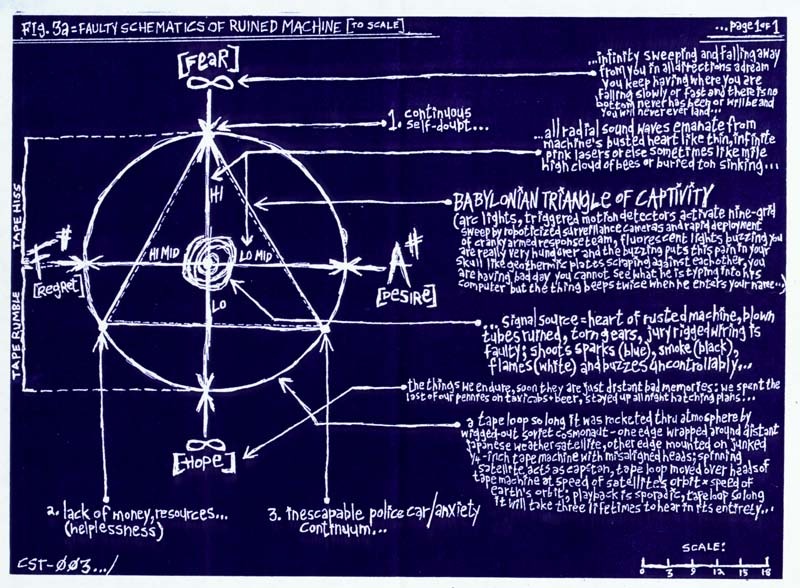 Fig. 3a = FAULTY SCHEMATICS OF RUINED MACHINE [TO SCALE]
...page 1 of 1
[FeaR]
...infinity sweeping and falling away
from you in all directions a dream
you keep having where you are
falling slowly or fast and there is no
bottom never has been or will be and
you will never ever land...
1. continuous
self-doubt...
...all radial sound waves emanate from
machine's busted heart like thin, infinite
pink lasers or else sometimes like mile
high cloud of bees or buried ton sinking...
TAPE HISS
HI
BABYLONIAN TRIANGLE OF CAPTIVITY
(arc lights, triggered motion detectors activate nine-grid
sweep by roboticized surveillance cameras and rapid deployment
of cranky armed response team, fluorescent lights buzzing you
are really very hungover and the buzzing puts this pain in your
skull like geothermic plates scraping against each other, you
are having bad day you cannot see what he is typing into his
computer but the thing beeps twice when he enters your name...)
F#
[Regret]
HI MID
LO MID
A#
[DESIRE]
LO
TAPE RUMBLE
...signal source = heart of rusted machine, blown
tubes ruined, torn gears, jury rigged wiring is
faulty; shoots sparks (blue), smoke (black),
flames (white) and buzzes uncontrollably...
the things we endure, soon they are just distant bad memories; we spent the
last of our pennies on taxicabs + beer, stayed up all night hatching plans...
a tape loop so long it was rocketed thru atmosphere by
wigged-out soviet cosmonaut - one edge wrapped around distant
japanese weather satellite, other edge mounted on junked
1/4-inch tape machine with misaligned heads; spinning
satellite acts as capstan, tape loop moved over heads of
tape machine at speed of satellite's orbit × speed of
earth's orbit; playback is sporadic, tape loop so long
it will take three lifetimes to hear in its entirety...
[HOPE]
2. lack of money, resources...
(helplessness)
3. inescapable police car/anxiety
continuum...
CST-003.../
SCALE:
0 3 9 12 15 18